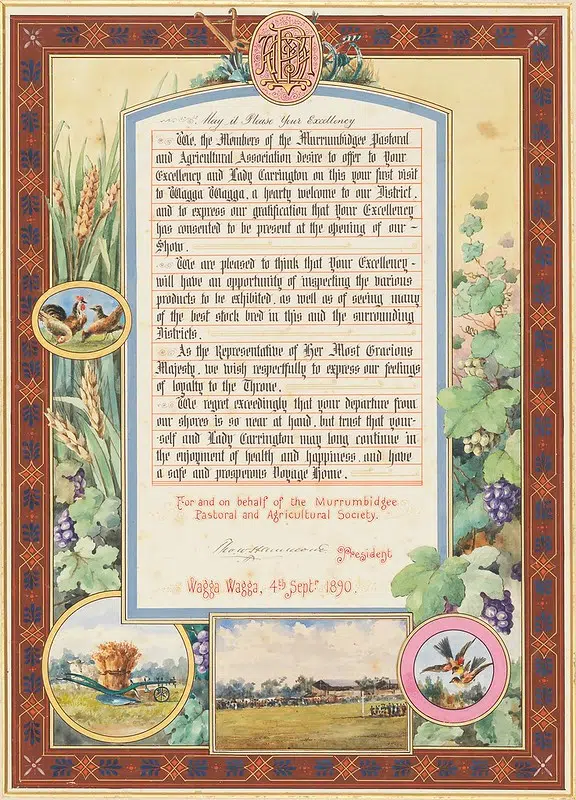 May it Please Your Excellency
We, the Members of the Murrumbidgee Pastoral
and Agricultural Association desire to offer to Your
Excellency and Lady Carrington on this your first visit
to Wagga Wagga, a hearty welcome to our District,
and to express our gratification that Your Excellency
has consented to be present at the opening of our -
Show.
We are pleased to think that Your Excellency -
will have an opportunity of inspecting the various
products to be exhibited, as well as of seeing many
of the best stock bred in this and the surrounding
Districts.
As the Representative of Her Most Gracious
Majesty, we wish respectfully to express our feelings
of loyalty to the Throne.
We regret exceedingly that your departure from
our shores is so near at hand, but trust that your-
self and Lady Carrington may long continue in
the enjoyment of health and happiness, and have
a safe and prosperous Voyage Home.
For and on behalf of the Murrumbidgee
Pastoral and Agricultural Society.
Hammond President
Wagga Wagga, 4th Septr 1890.